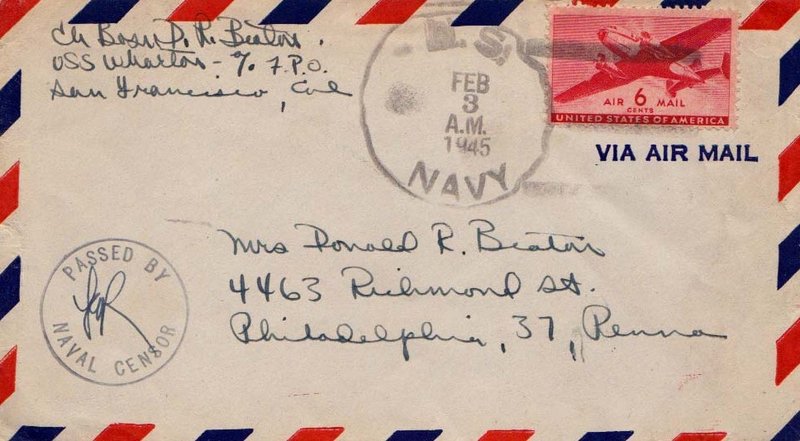 Ch Bosn D. R. Beaton.
USS Wharton - % F.P.O.
San Francisco, Cal
U.S.
FEB
3
A.M.
1945
NAVY
AIR 6 MAIL
CENTS
UNITED STATES OF AMERICA
VIA AIR MAIL
Mrs Donald R. Beaton
4463 Richmond St.
Philadelphia, 37, Penna
PASSED BY
NAVAL CENSOR